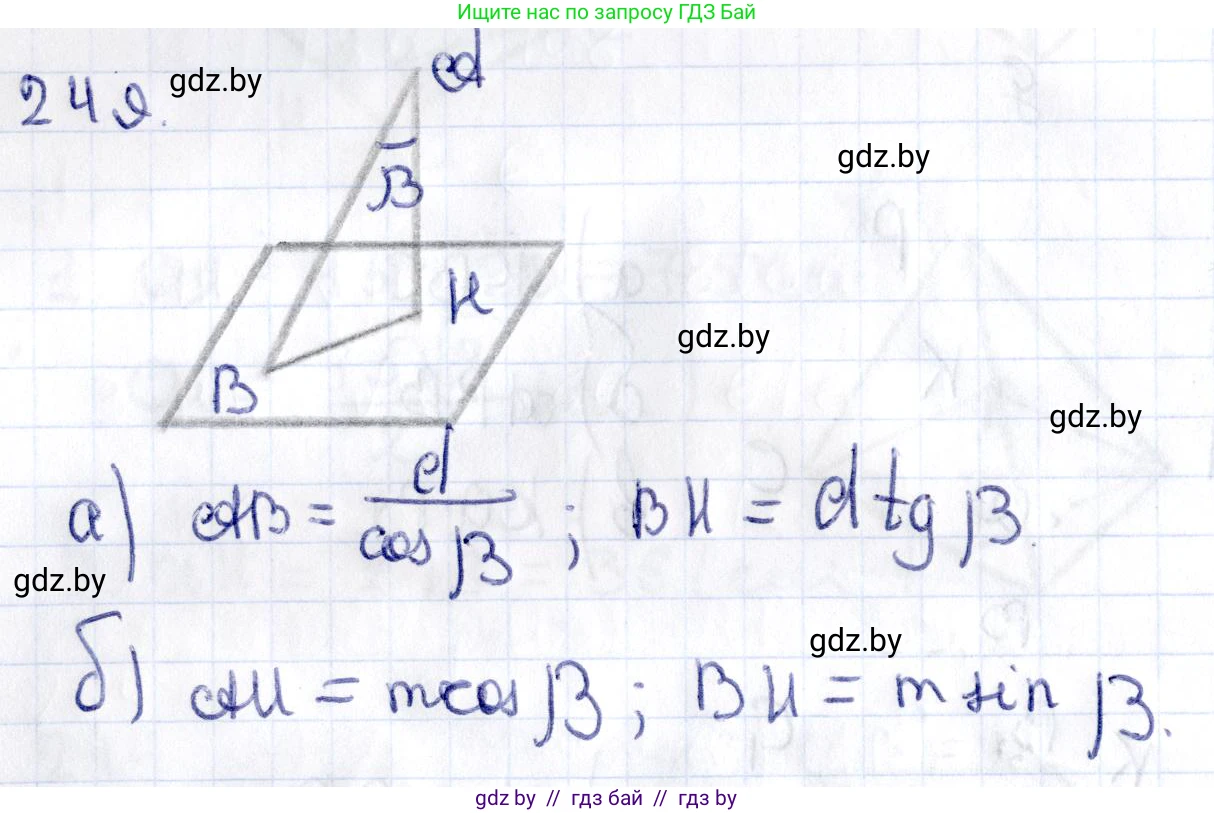 Ищите нас по запросу ГДЗ Бай
249.
gdz.by
A
β
gdz.by
H
gdz.by
B
gdz.by
а) AB = d/cos β ; BH = d tg β.
gdz.by
gdz.by
б) AH = m cos β ; BH = m sin β.
gdz.by // гдз бай // гдз by